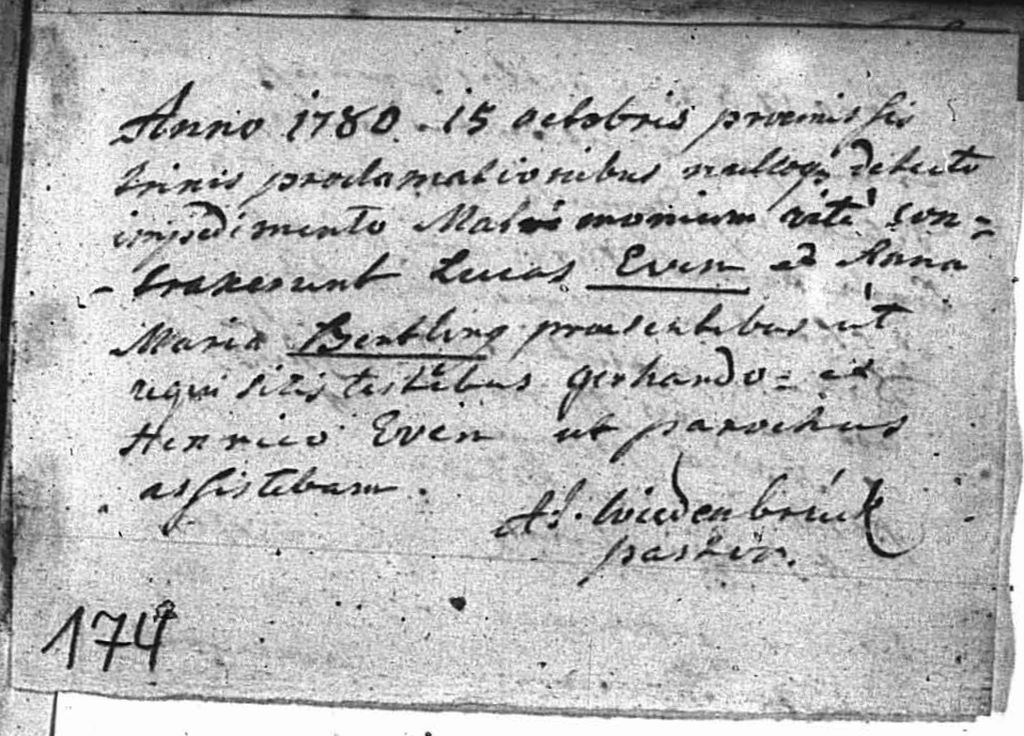 Anno 1780 15 octobris praemissis
trinis proclamationibus nulloq; detecto
impedimento Matrimonium ritè con=
traxerunt Lucas Even et Anna
Maria Bentling praesentibus ùt
requisitis testibus gerhardo = et
Henrico Even ut parochus
assistebam.
Wiedenbrück
pastor.
174